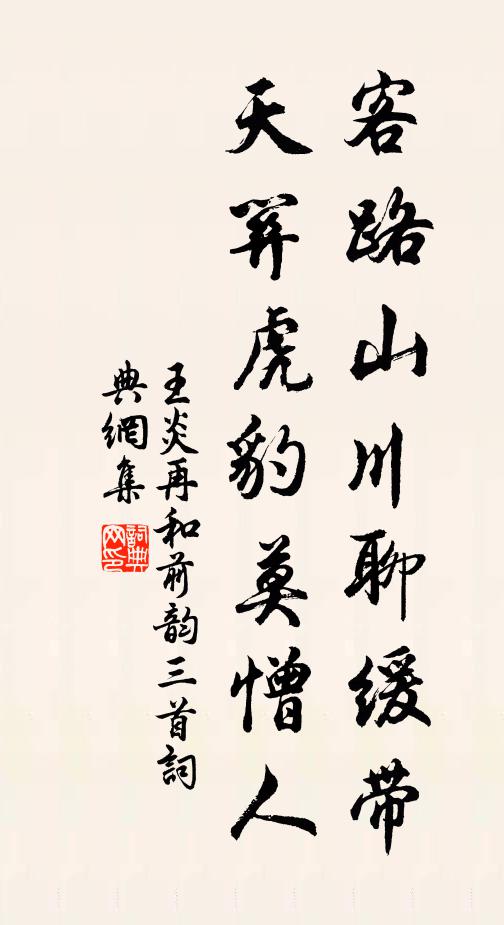 客路山川聊缓带
天關虎豹莫憎人
王炎再和前韵三首詞
典網集
詞典網印